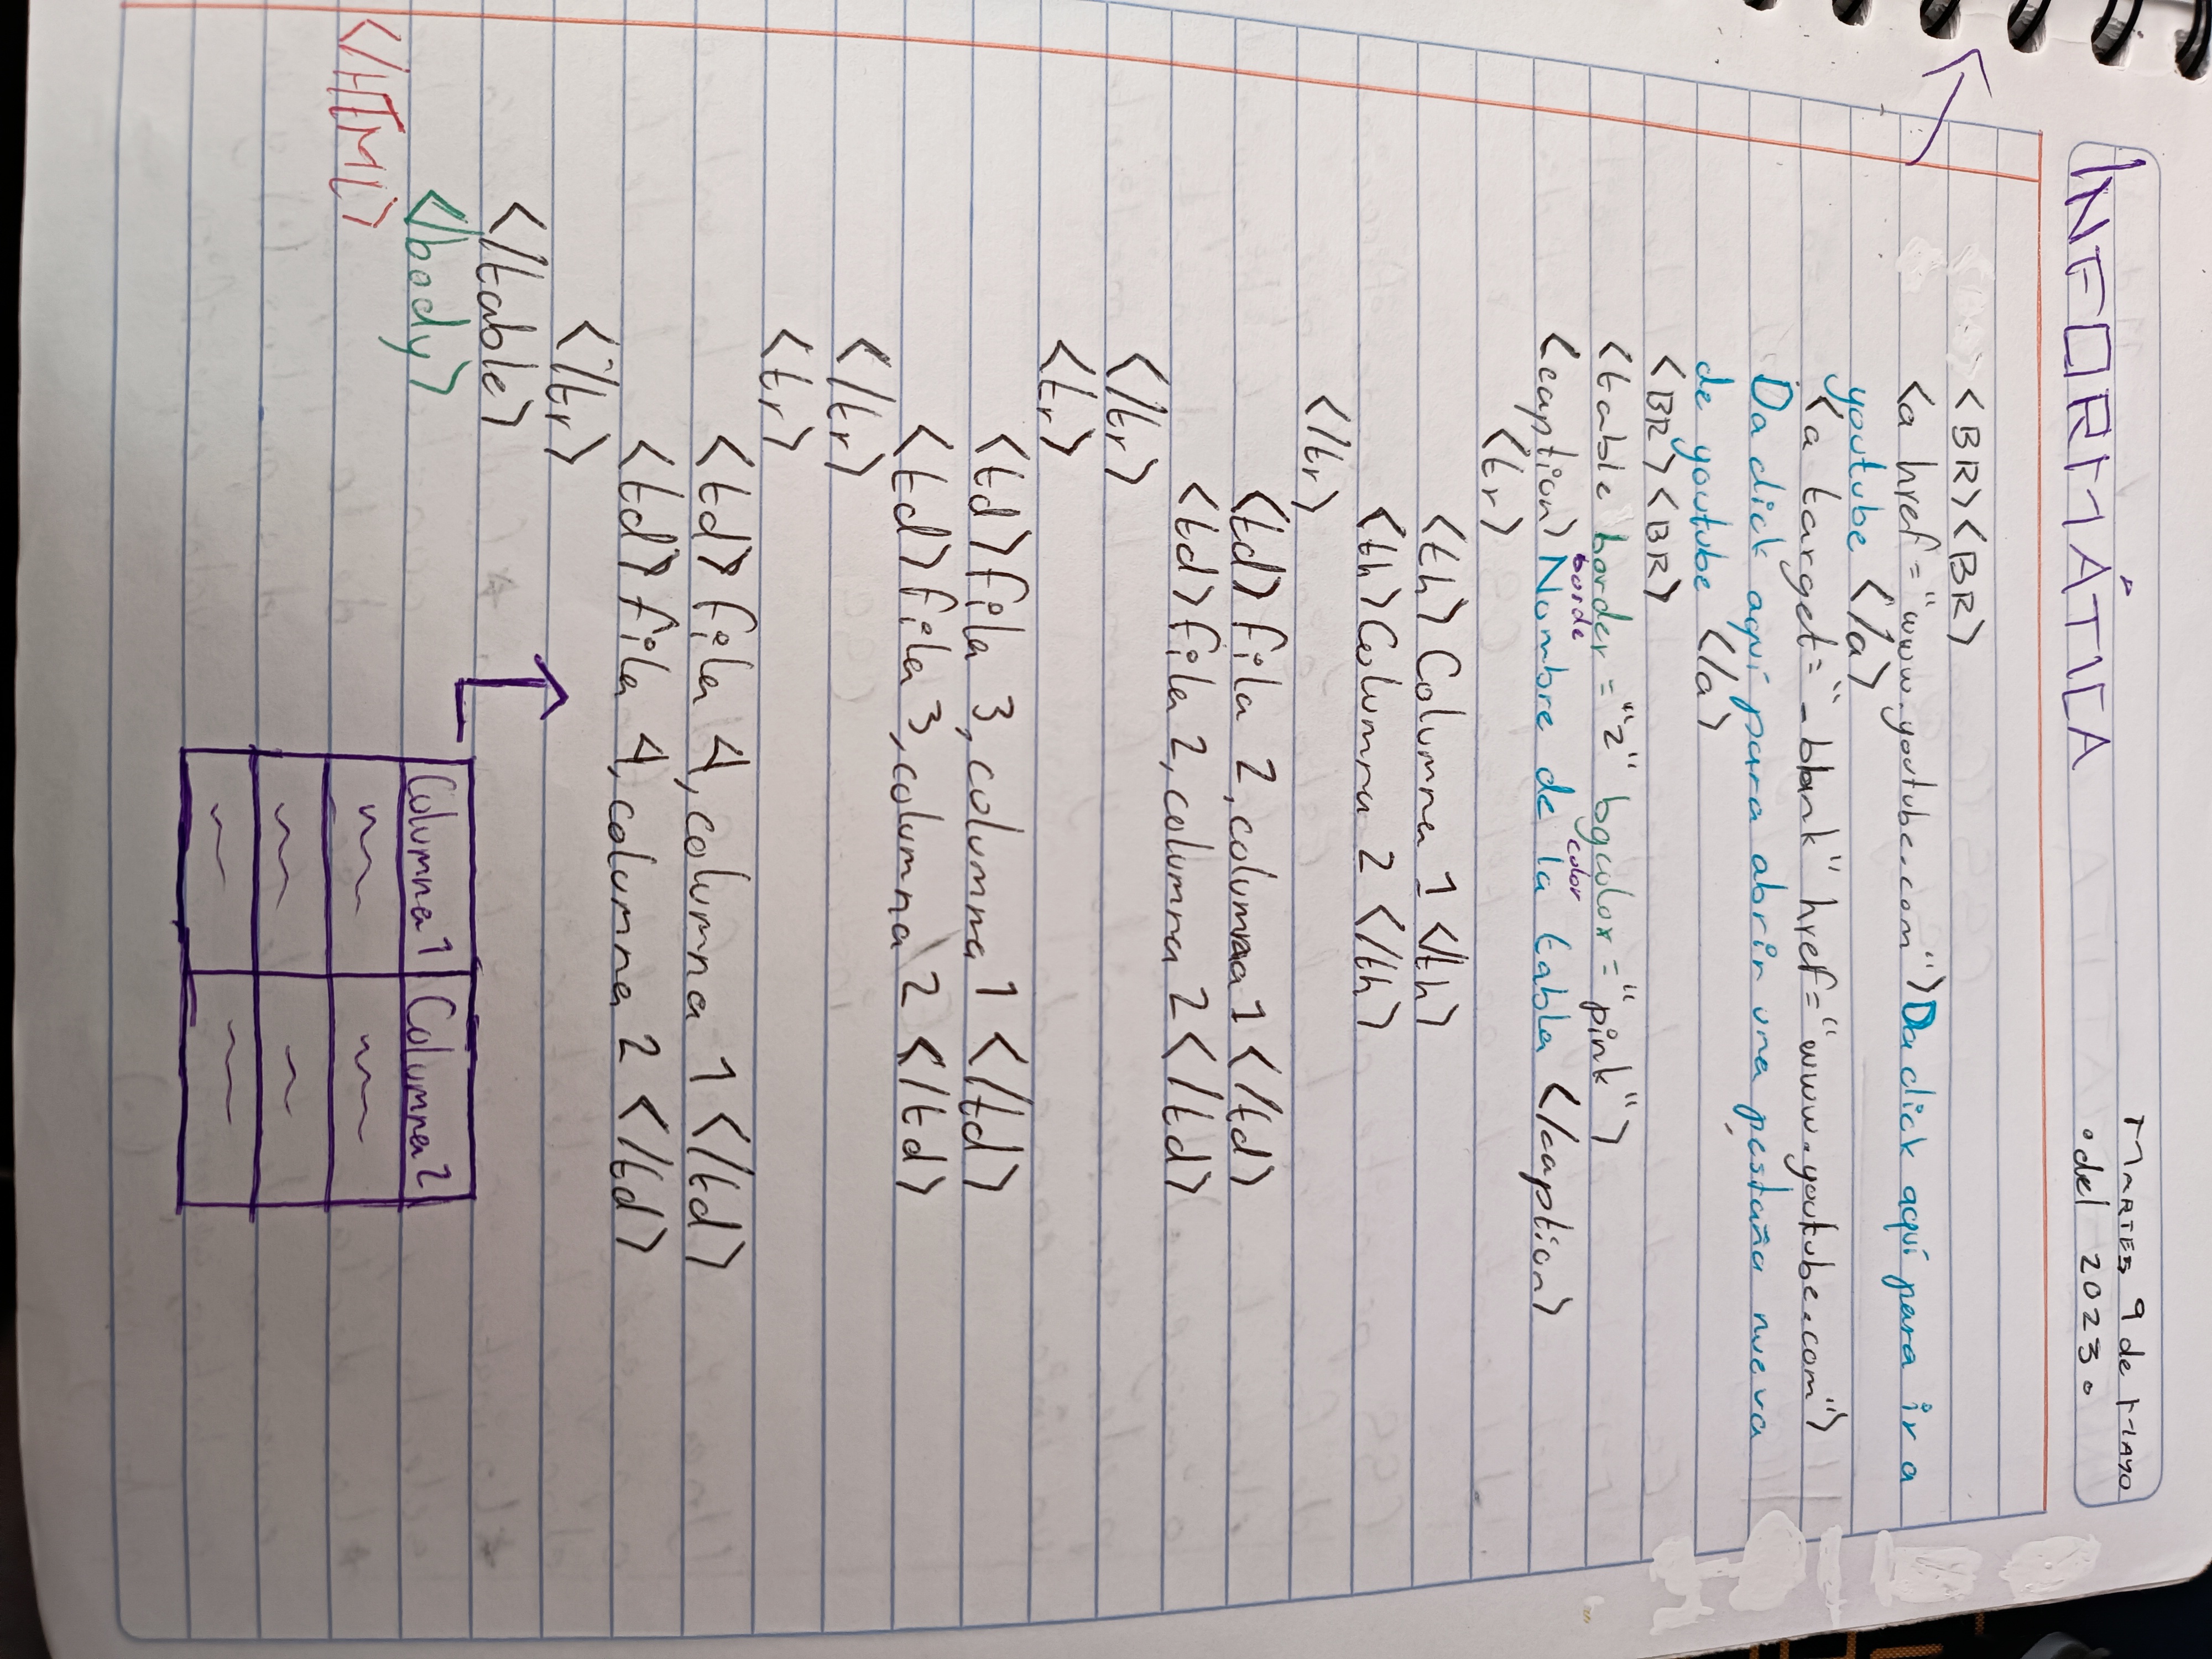 INFORMÁTICA
MARTES 9 de MAYO
.del 2023.
<BR><BR>
<a href="www.youtube.com">Da click aquí para ir a
youtube </a>
<a target="_blank" href="www.youtube.com">
Da click aquí para abrir una pestaña nueva
de youtube </a>
<BR><BR>
<table border="2" bgcolor="pink">
borde color
<caption>Nombre de la tabla </caption>
<tr>
<th>Columna 1</th>
<th>Columna 2</th>
</tr>
<td>fila 2, columna 1</td>
<td>fila 2, columna 2</td>
</tr>
<tr>
<td>fila 3, columna 1</td>
<td>fila 3, columna 2</td>
</tr>
<tr>
<td>fila 4, columna 1</td>
<td>fila 4, columna 2</td>
</tr>
</table>
</body>
</HTML>
Columna 1 Columna 2